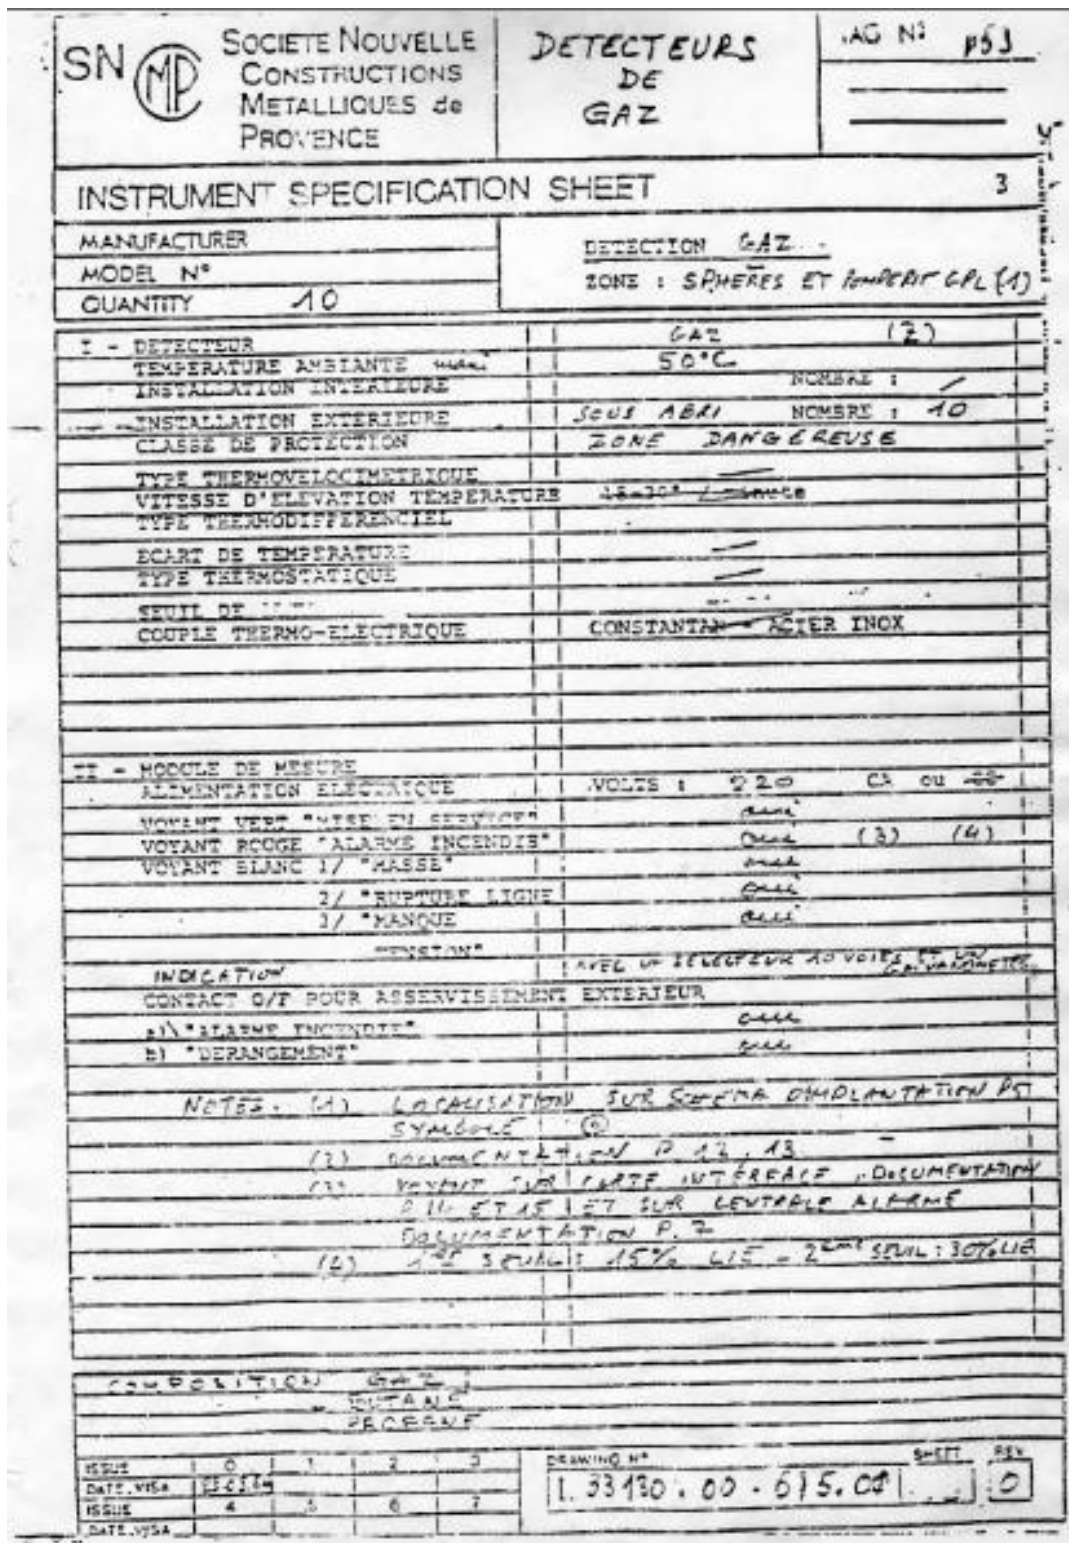 SN MP SOCIETE NOUVELLE
CONSTRUCTIONS
METALLIQUES de
PROVENCE
DETECTEURS
DE
GAZ
AG N°
INSTRUMENT SPECIFICATION SHEET 3
MANUFACTURER
MODEL N°
QUANTITY 10
DETECTION GAZ
ZONE : SPHERES ET GPL (1)
I - DETECTEUR GAZ (2)
TEMPERATURE AMBIANTE maxi 50°C
INSTALLATION INTERIEURE NOMBRE : /
INSTALLATION EXTERIEURE SOUS ABRI NOMBRE : 10
CLASSE DE PROTECTION ZONE DANGEREUSE
TYPE THERMOVELOCIMETRIQUE
VITESSE D'ELEVATION TEMPERATURE
TYPE THERMODIFFERENCIEL
ECART DE TEMPERATURE
TYPE THERMOSTATIQUE
SEUIL DE
COUPLE THERMO-ELECTRIQUE CONSTANTAN - ACIER INOX
II - MODULE DE MESURE
ALIMENTATION ELECTRIQUE VOLTS : 220 CA ou
VOYANT VERT "MISE EN SERVICE" oui
VOYANT ROUGE "ALARME INCENDIE" oui (3) (4)
VOYANT BLANC 1/ "MASSE" oui
2/ "RUPTURE LIGNE oui
3/ "MANQUE oui
TENSION"
INDICATION AVEC UN SELECTEUR 10 VOIES ET UN
GALVANOMETRE
CONTACT O/F POUR ASSERVISSEMENT EXTERIEUR
a) "ALARME INCENDIE" oui
b) "DERANGEMENT" oui
NOTES. (1) LOCALISATION SUR SCHEMA D'IMPLANTATION
SYMBOLE
(2) DOCUMENTATION P. 12, 13
(3) SUR CARTE INTERFACE, DOCUMENTATION
P. 14 ET 15 ET SUR CENTRALE ALARME
DOCUMENTATION P. 7
(4) 1ER SEUIL : 15% LIE - 2EME SEUIL : 30% LIE
COMPOSITION GAZ
BUTANE
PROPANE
ISSUE 0 1 2 3
DATE.VISA
ISSUE 4 5 6 7
DATE.VISA
DRAWING N° SHEET REV
33130.00.615.01 0